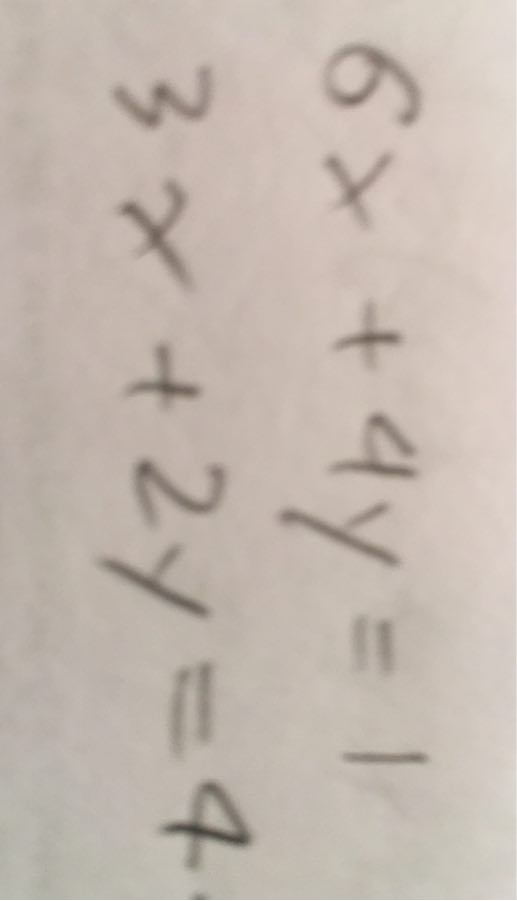 6x + 4y = 1
3x + 2y = 4